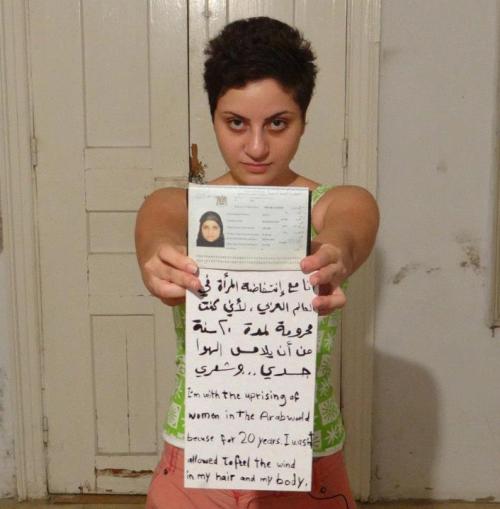 أنا مع إنتفاضة المرأة في
العالم العربي، لأني كنت
محرومة لمدة ٢٠ سنة
من أن يلامس الهوا
جسدي.. وشعري
I'm with the uprising of
women in the Arab world
becuse for 20 years. I wasnt
allowed To feel the wind
in my hair and my body.